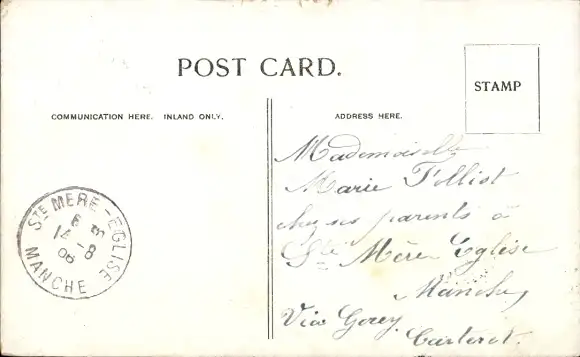 POST CARD.
STAMP
COMMUNICATION HERE. INLAND ONLY.
ADDRESS HERE.
Mademoiselle
Marie
chez ses parents à
Ste Mère Eglise
Manche
Via Gorey
Carteret.
STE MERE-EGLISE
MANCHE